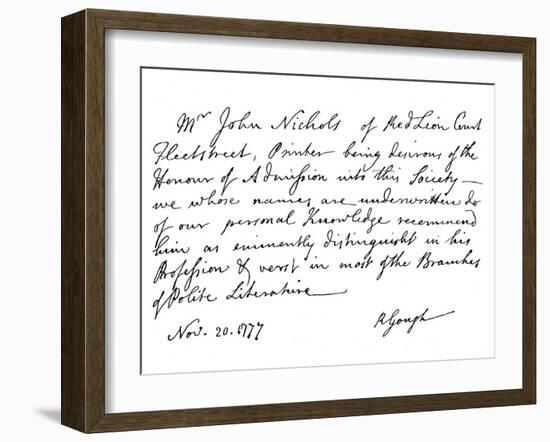 Mr John Nichols of Red Lion Court
Fleetstreet, Printer being desirous of the
Honour of Admission into this Society—
we whose names are underwritten do
of our personal Knowledge recommend
him as eminently distinguisht in his
Profession & verst in most of the Branches
of Polite Literature
Nov. 20. 1777
RGough